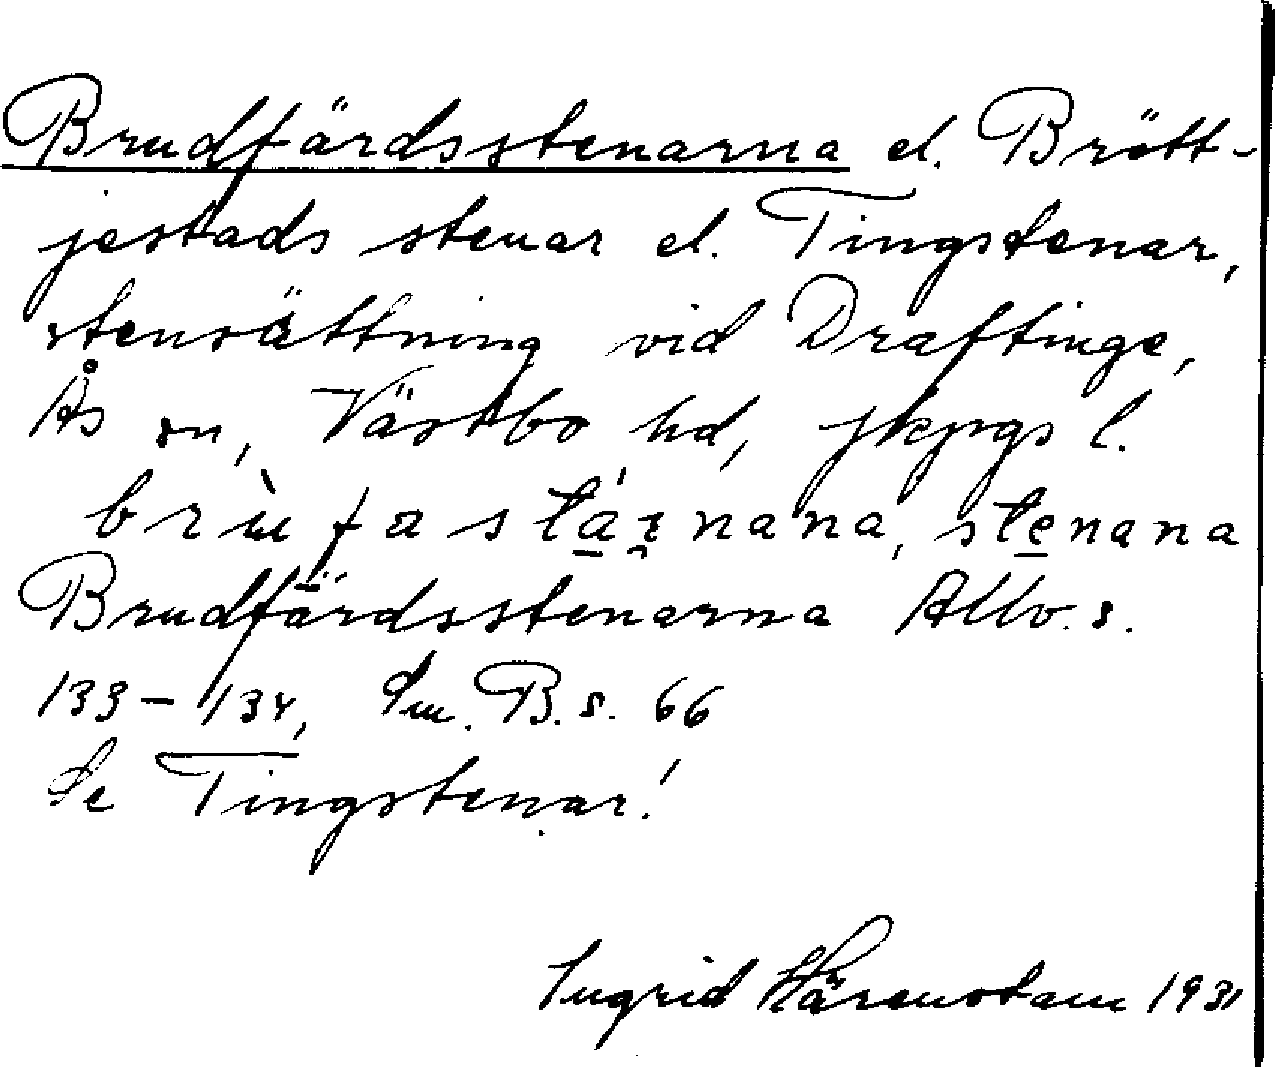 Brudfärdsstenarna el. Brött-
jestads stenar el. Tingstenar,
stensättning vid Draftinge,
Ås sn, Västbo hd, jkpgs l.
brùfastánana, stenana
Brudfärdsstenarna Allv. s.
133–134, Sm. B. s. 66
Se Tingstenar!
Ingrid Härenstam 1931